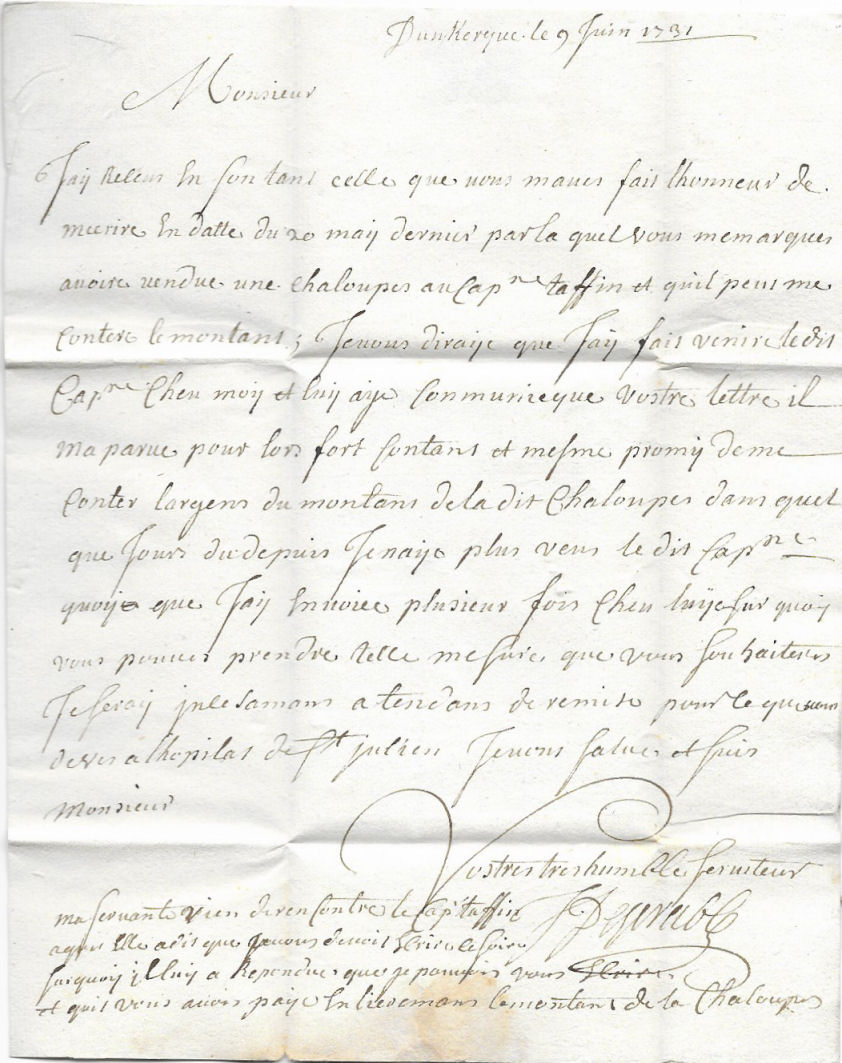 Dunkerque le 9 Juin 1731
Monsieur
Jaÿ Receus En son tans celle que vous maves fait lhonneur de
mecrire En datte du 20 maÿ dernier par la quel vous memarques
avoire vendue une Chaloupes au Capne taffin et quil peus me
Contere le montans; Je vous diraye que Jaÿ fait venire le dit
Capne Cheu moÿ et luÿ aye Communicque vostre lettre il
ma parue pour lors fort Contans et mesme promÿ de me
Conter largens du montans de la dit Chaloupes dans quel
que Jours du depuis Je naye plus veus le dit Capne
quoÿe que Jaÿ Envoiee plusieur fois Cheu luÿe sur quoÿ
vous pouves prendre telle mesure que vous souhaiteres
Je seraÿ a tendans de remise pour le que
deves a lhopitas de St julien Je vous salue et suis
Monsieur
Vostres tres humble serviteur
ma servante vien de ren Contre le Cap taffin
a quis Elle a dit que Je vous devois Ecrire le soire
sur quoÿ jl luÿ a Repondue que je pouvois vous Ecrire
et quil vous avois paÿe Entieremans le montans de la Chaloupes